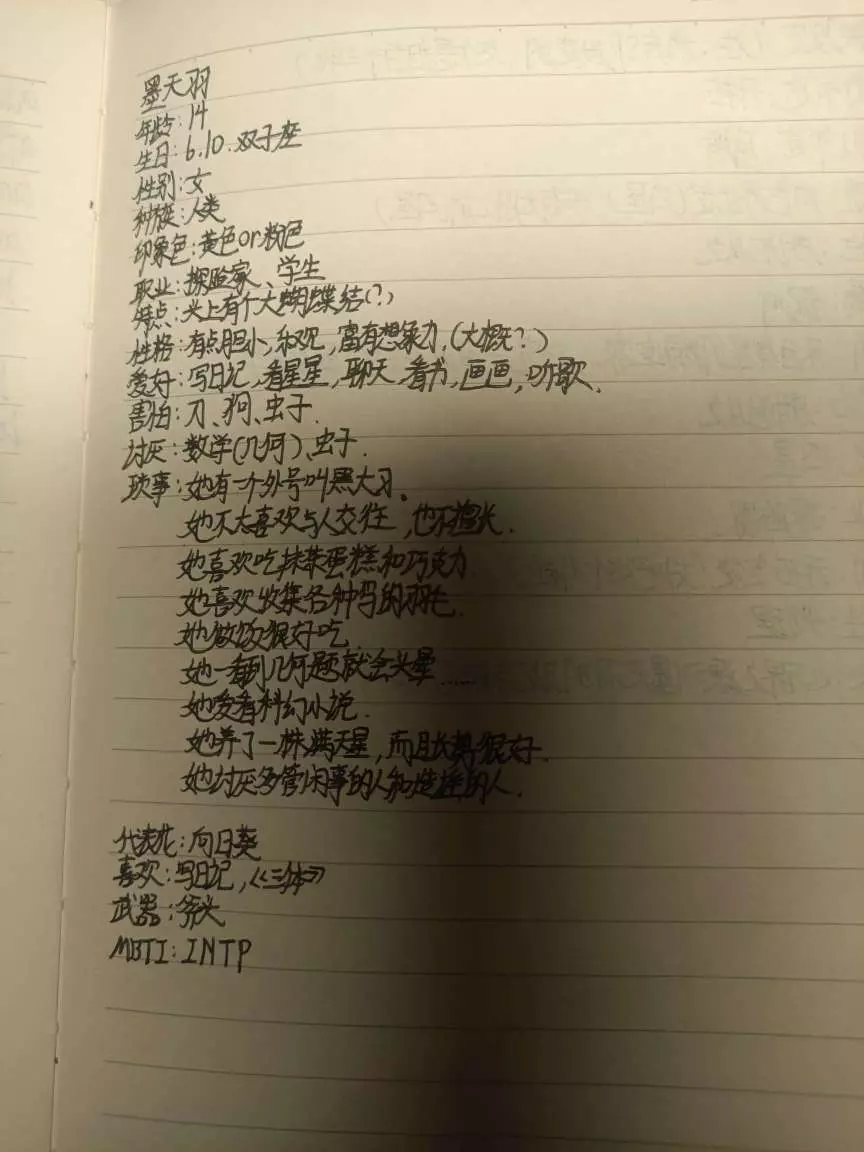 墨天羽
年龄:14
生日:6.10.双子座
性别:女
种族:人类
印象色:黄色or粉色
职业:探险家、学生
特点:头上有个大蝴蝶结(?)
性格:有点胆小,乐观,富有想象力.(大概?)
爱好:写日记,看星星,聊天,看书,画画,听歌.
害怕:刀、狗、虫子.
讨厌:数学(几何)、虫子.
琐事:她有一个外号叫黑大习.
她不太喜欢与人交往,也不擅长.
她喜欢吃抹茶蛋糕和巧克力
她喜欢收集各种鸟的羽毛.
她做饭很好吃.
她一看到几何题就会头晕......
她爱看科幻小说.
她养了一株满天星,而且长势很好.
她讨厌多管闲事的人和造谣的人.
代表花:向日葵
喜欢:写日记,《三体》
武器:斧头
MBTI:INTP